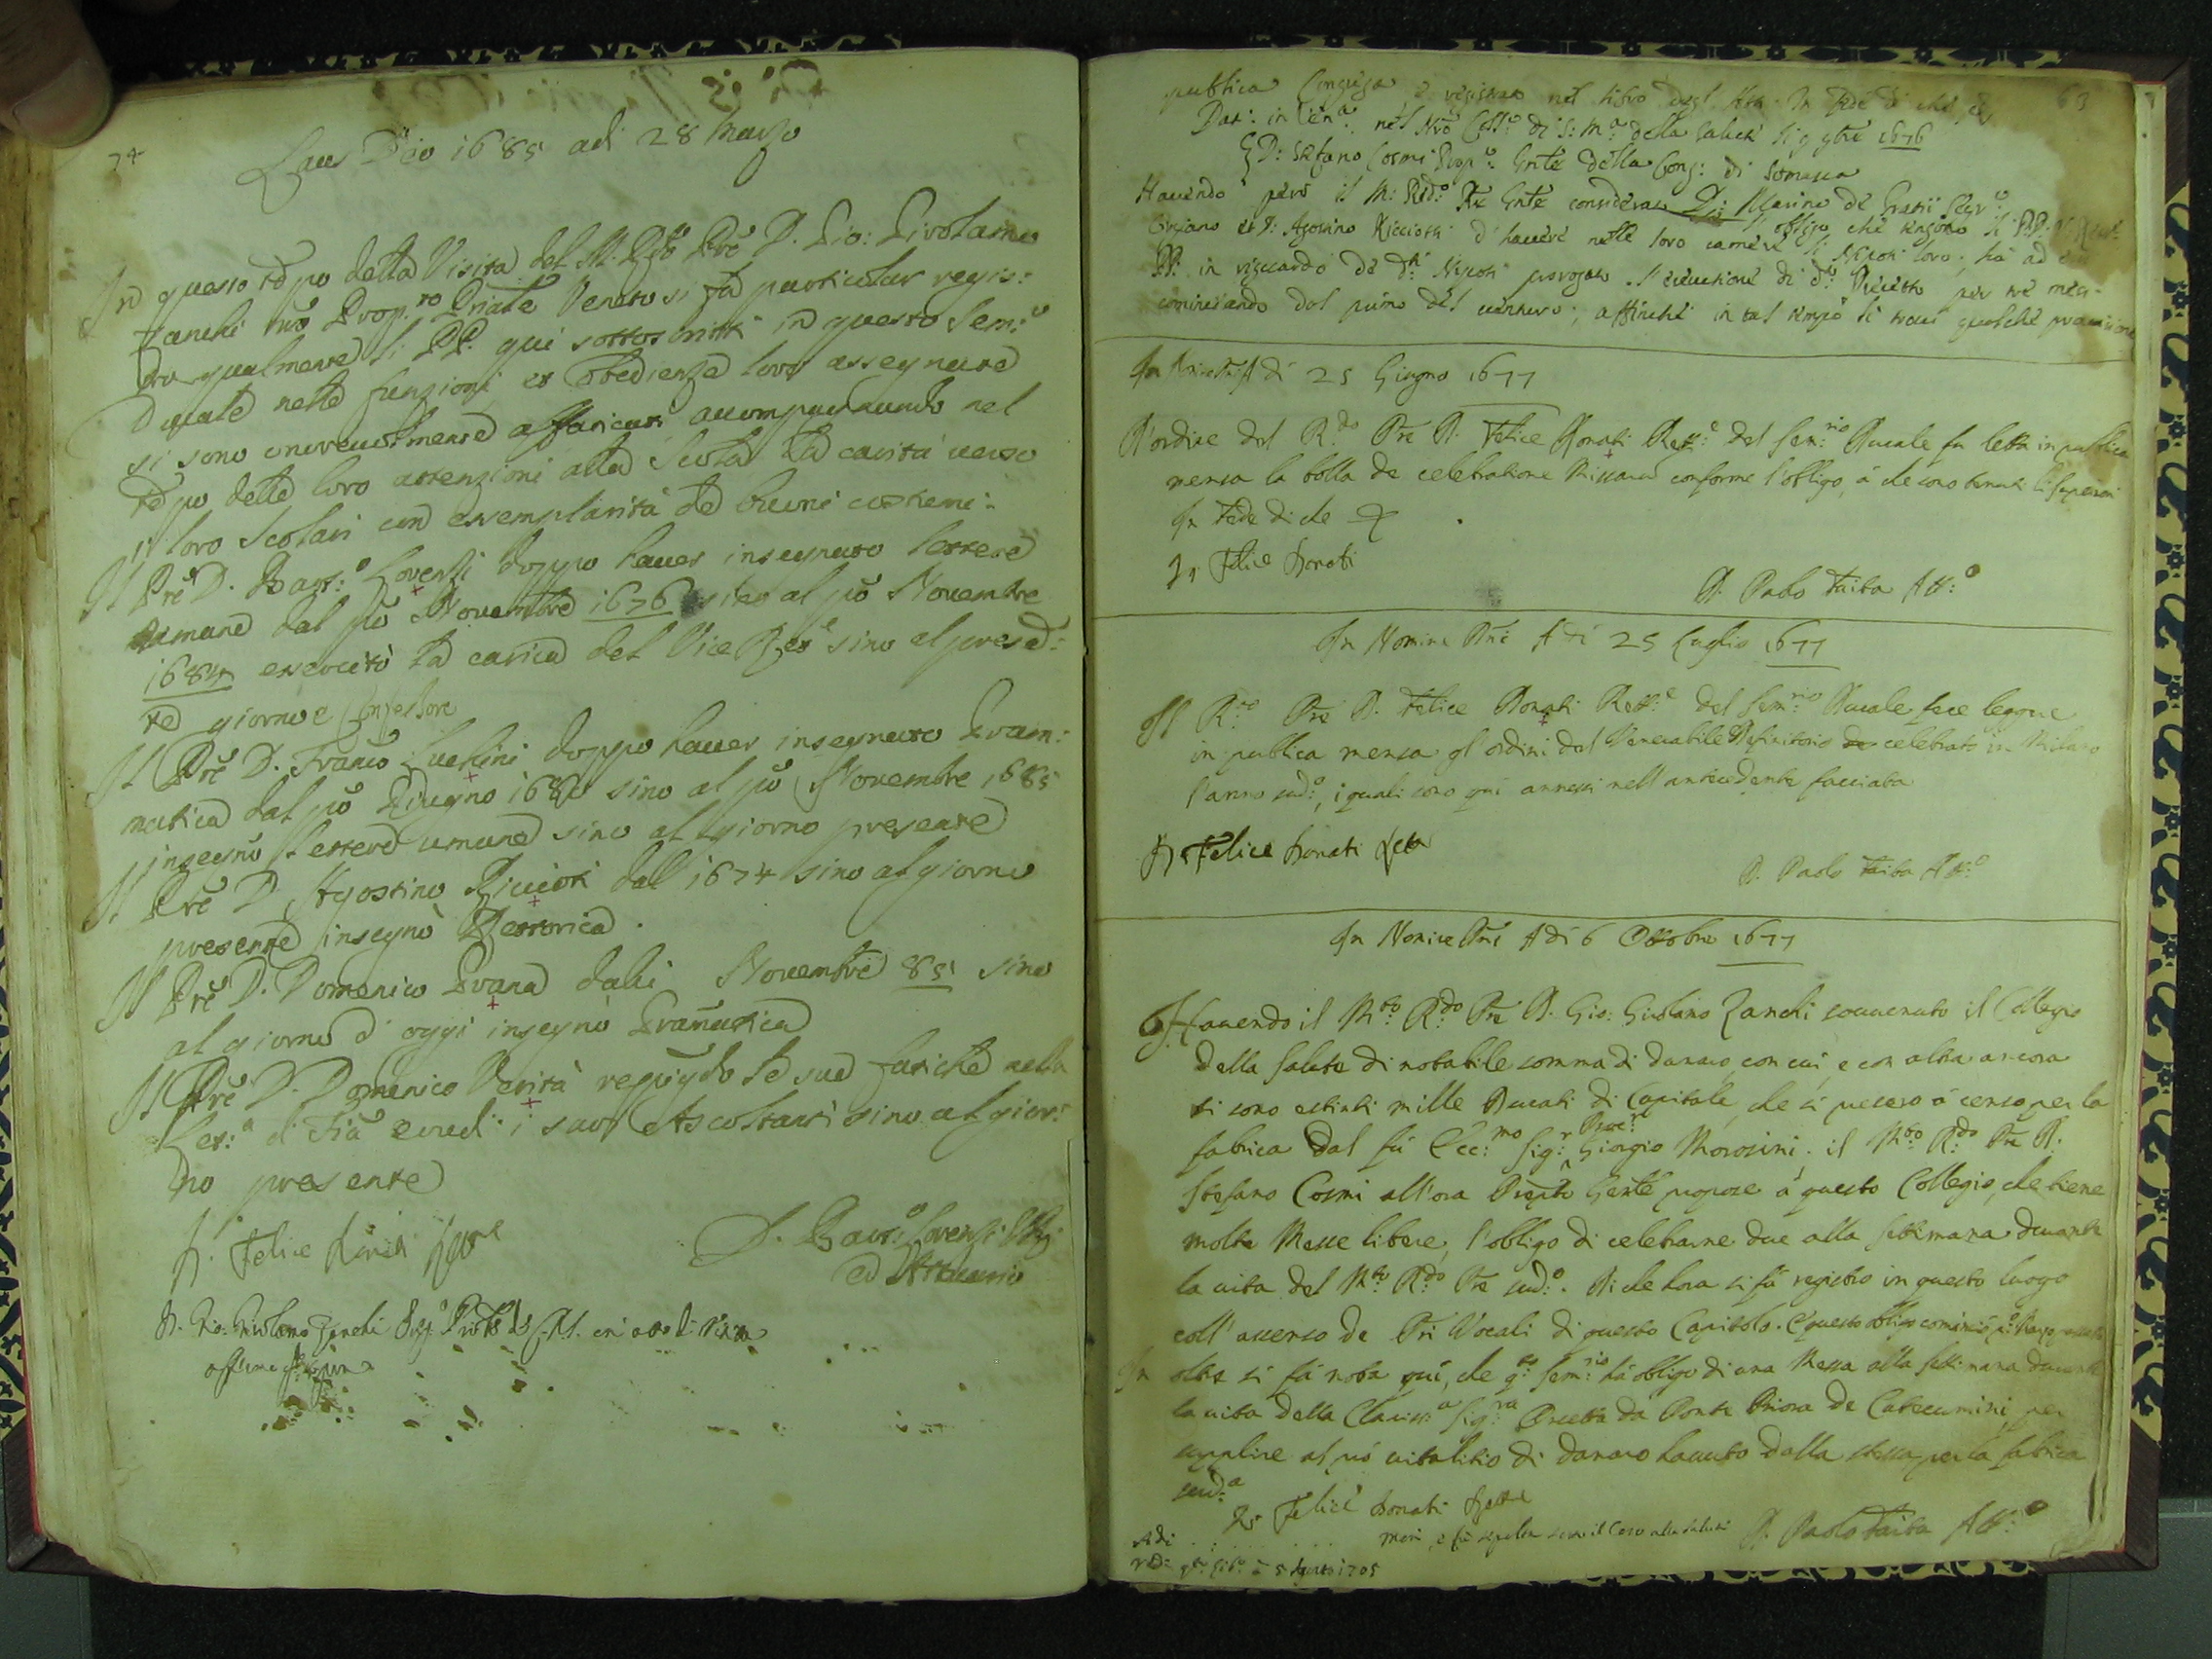 74
Laus Deo 1685 adi 28 Marzo
In questo tempo della Visita del M. Rdo Pre D. Gio: Girolamo
Zanchi nro Prep.to Prãle Veneto si fa particolar regis:
tro qualmente li PP. qui sottoscritti in questo Sem:o
Ducale nelle funzioni, et obedienze loro assegnate
si sono affaticati accompagnando nel
tempo delle loro attenzioni alla Scola la carità verso
i loro Scolari con esemplarità de buoni costumi:
Il Pre D. Bart:o Lorenzi doppo haver insegnato lettere
umane dal pô Novembre 1676 sino al pô Novembre
1684 essercitò la carica del Vice Ret.e sino al presẽ:
te giorno e Confessore
Il Pre D. Franco Luchini doppo haver insegnato Gram:
matica dal pô Giugno 1680 sino al pô Novembre 1685
insegnò lettere umane sino al giorno presente
Il Pre D. Agostino Ricciotti dall 1674 sino al giorno
presente insegnò Rettorica.
Il Pre D. Domenico Grana dalli Novembre 85 sino
al giorno d'oggi insegnò Gramatica
Il Pre D. Domenico Verità le sue fatiche nella
i suoi Ascoltanti sino al gior:
no presente
D. Felice Donati
D. Bart:o Lorenzi
ed Attuario
D. Gio: Girolamo Zanchi in atto di Visita
63
publica è registrato nel libro degl Atti. In fede di che
Dat: in Ven.a nel Nro Coll.o di S: M.a della Salute li 9 9bre 1676
D: Stefano Cosmi Prep.o Gnle della Cong: di Somasca
Havendo però il M: Rdo: Pre Gnle considerato l'obligo che tengono li PP. D.
D: Agostino Ricciotti d'havere nelle loro camere li Nipoti loro, hà ad
PP. in riguardo de d.ti Nipoti prorogato l'esecutione di d.o Decreto per tre mesi
cominciando dal primo del venturo; affinche in tal tempo si trovi qualche provisione
In Adi 25 Giugno 1677
D'ordine del R.do Pre D. Felice Donati Rett:e del Sem:rio Ducale fu letta in publica
mensa la bolla de celebratione Missarum conforme l'obligo, à che sono tenuti li Superiori
In fede di che
D. Felice Donati
D. Paolo Taiba Att:o
In Nomine Dni Adi 25 Luglio 1677
Il R.do Pre D. Felice Donati Rett:e del Sem:rio Ducale fece leggere
in publica mensa gl ordini dal Venerabile Definitorio celebrato in Milano
l'anno sud:o, i quali sono qui annessi nell'antecedente facciata
D. Felice Donati Rett.e
D. Paolo Taiba Att:o
In Nomine Dni Adi 6 Ottobre 1677
Havendo il M.to R.do Pre D. Gio: Girolamo Zanchi sovvenuto il Collegio
della Salute di notabile somma di danaro, con cui, e con altra ancora
si sono estinti mille Ducati di Capitale, che si presero à censo per la
fabrica dal fù Ecc:mo Sig:r Proc:r Giorgio Morosini; il M.to R.do Pre D.
Stefano Cosmi all'ora Prepto Gnle propose à questo Collegio, che tiene
molte Messe libere, l'obligo di celebrarne due alla settimana durante
la vita del M.to R.do Pre sud:o. Di che hora si fà registro in questo luogo
coll'assenso de Pri Vocali di questo Capitolo. E questo obligo cominciò
In oltre si fà nota qui, che q.to Sem:rio hà obligo di una Messa alla settimana durante
la vita della Clariss:a Sig:ra da Ponte Priora de Catecumini, per
supplire al prò vitalitio di danaro havuto dalla stessa per la fabrica
sud:a
D. Felice Donati Rett.e
D. Paolo Taiba Att:o
Adi . . . . . . morì, e fù sepolta sotto il Coro alla Salute
5 Agosto 1705